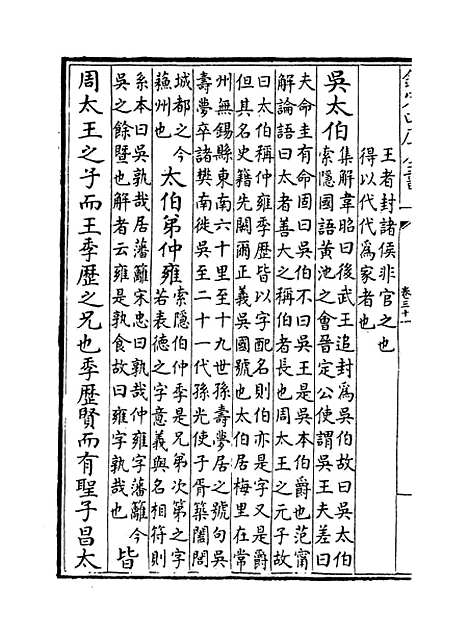 卷三十一
王者封諸侯非官之也
得以代代為家者也
吳太伯
集解韋昭曰後武王追封為吳伯故曰吳太伯
索隱國語黃池之會晉定公使謂吳王夫差曰
夫命圭有命固曰吳伯不曰吳王是吳本伯爵也范甯
解論語曰太者善大之稱伯者長也周太王之元子故
曰太伯稱仲雍季歷皆以字配名則伯亦是字又是爵
但其名史籍先闕爾正義吳國號也太伯居梅里在常
州無錫縣東南六十里至十九世孫壽夢居之號句吳
壽夢卒諸樊南徙吳至二十一代孫光使子胥築闔閭
城都之今
蘇州也
太伯弟仲雍
索隱伯仲季是兄弟次第之字
若表德之字意義與名相符則
系本曰吳孰哉居藩籬宋忠曰孰哉仲雍字藩籬今
吳之餘暨也解者云雍是孰食故曰雍字孰哉也
皆
周太王之子而王季歷之兄也季歷賢而有聖子昌太